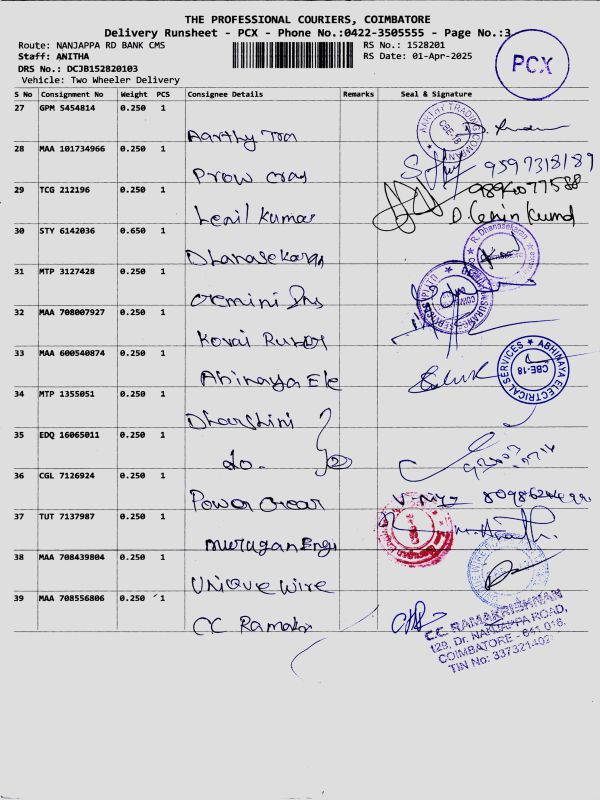 THE PROFESSIONAL COURIERS, COIMBATORE
Delivery Runsheet - PCX - Phone No.:0422-3505555 - Page No.:3
Route: NANJAPPA RD BANK CMS
RS No.: 1528201
Staff: ANITHA
RS Date: 01-Apr-2025
DRS No.: DCJB152820103
Vehicle: Two Wheeler Delivery
PCX
S No Consignment No Weight PCS Consignee Details Remarks Seal & Signature
27 GPM 5454814 0.250 1
Aarthy Tra
AARTHY TRADING COMPANY CBE-18
28 MAA 101734966 0.250 1
Prow Cray
9597318189
29 TCG 212196 0.250 1
9894077588
Lenil Kumar
D. Lenin Kumar
30 STY 6142036 0.650 1
Dhanasekaran
R. Dhanasekaran
31 MTP 3127428 0.250 1
Gemini Ins
32 MAA 708007927 0.250 1
Kovai Rubber
33 MAA 600540874 0.250 1
Abinaya Ele
ABHINAYA ELECTRICAL SERVICES CBE-18
34 MTP 1355051 0.250 1
Dharshini
35 EDQ 16065011 0.250 1
do.
36 CGL 7126924 0.250 1
Power Gear
37 TUT 7137987 0.250 1
Murugan Engi
38 MAA 708439804 0.250 1
Unique Wire
39 MAA 708556806 0.250 1
CC Ramakri
C.C. RAMAKRISHNAN
129, Dr. NANJAPPA ROAD,
COIMBATORE - 641 018.
TIN No: 337321402